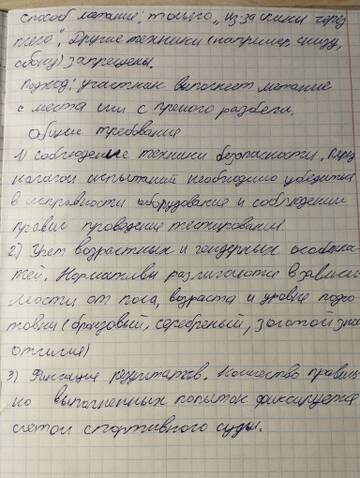 способ метания: только „из-за спины через
плечо", Другие техники (например снизу,
сбоку) запрещены.
Подход: участник выполняет метание
с места или с прямого разбега.
Общие требования
1) соблюдение техники безопасности. Перед
началом испытаний необходимо убедиться
в исправности оборудования и соблюдении
правил проведения тестирования
2) Учет возрастных и гендерных особенос
тей. Нормативы различаются в зависи
мости от пола, возраста и уровня подго
товки (бронзовый, серебреный, золотой знак
отличия)
3) Фиксация результатов. Количество правиль
но выполненных попыток фиксируется
счетом спортивного судьи.